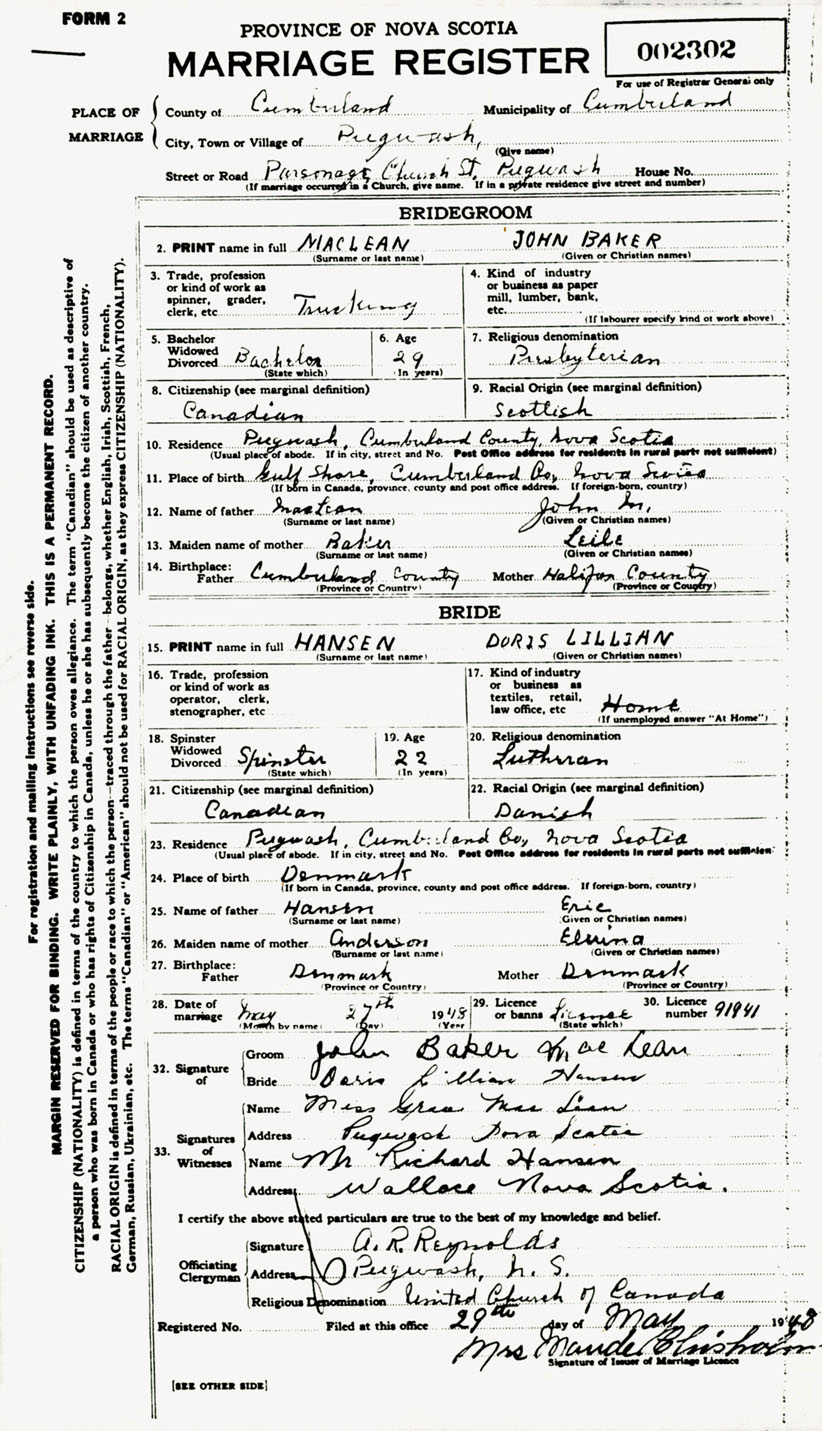 FORM 2
PROVINCE OF NOVA SCOTIA
MARRIAGE REGISTER
002302
For use of Registrar General only
PLACE OF MARRIAGE
County of Cumberland Municipality of Cumberland
City, Town or Village of Pugwash,
(Give name)
Street or Road Parsonage, Church St, Pugwash House No.
(If marriage occurred in a Church, give name. If in a private residence give street and number)
BRIDEGROOM
2. PRINT name in full MACLEAN JOHN BAKER
(Surname or last name) (Given or Christian names)
3. Trade, profession or kind of work as spinner, grader, clerk, etc Trucking
4. Kind of industry or business as paper mill, lumber, bank, etc.
(If labourer specify kind of work above)
5. Bachelor Widowed Divorced Bachelor
(State which)
6. Age 29
(In years)
7. Religious denomination
Presbyterian
8. Citizenship (see marginal definition)
Canadian
9. Racial Origin (see marginal definition)
Scottish
10. Residence Pugwash, Cumberland County, Nova Scotia
(Usual place of abode. If in city, street and No. Post Office address for residents in rural parts not sufficient)
11. Place of birth Gulf Shore, Cumberland Co, Nova Scotia
(If born in Canada, province, county and post office address. If foreign-born, country)
12. Name of father MacLean John M.
(Surname or last name) (Given or Christian names)
13. Maiden name of mother Baker
(Surname or last name) (Given or Christian names)
14. Birthplace: Father Cumberland County Mother Halifax County
(Province or Country) (Province or Country)
BRIDE
15. PRINT name in full HANSEN DORIS LILLIAN
(Surname or last name) (Given or Christian names)
16. Trade, profession or kind of work as operator, clerk, stenographer, etc
17. Kind of industry or business as textiles, retail, law office, etc Home
(If unemployed answer "At Home")
18. Spinster Widowed Divorced Spinster
(State which)
19. Age 22
(In years)
20. Religious denomination
Lutheran
21. Citizenship (see marginal definition)
Canadian
22. Racial Origin (see marginal definition)
Danish
23. Residence Pugwash, Cumberland Co, Nova Scotia
(Usual place of abode. If in city, street and No. Post Office address for residents in rural parts not sufficient
24. Place of birth Denmark
(If born in Canada, province, county and post office address. If foreign-born, country)
25. Name of father Hansen Eric
(Surname or last name) (Given or Christian names)
26. Maiden name of mother Anderson
(Surname or last name) (Given or Christian names)
27. Birthplace: Father Denmark Mother Denmark
(Province or Country) (Province or Country)
28. Date of marriage May 27th 1948
(Month by name) (Day) (Year
29. Licence or banns License
(State which)
30. Licence number 91941
32. Signature of
Groom John Baker MacLean
Bride Doris Lillian Hansen
33. Signatures of Witnesses
Name Miss Grace MacLean
Address Pugwash Nova Scotia
Name Mr Richard Hansen
Address Wallace Nova Scotia.
I certify the above stated particulars are true to the best of my knowledge and belief.
Officiating Clergyman
Signature A.R. Reynolds
Address Pugwash, N. S.
Religious Denomination United Church of Canada
Registered No. Filed at this office 29th day of May 1948
Mrs Maude Chisholm
Signature of Issuer of Marriage Licence
[SEE OTHER SIDE]
For registration and mailing instructions see reverse side.
MARGIN RESERVED FOR BINDING. WRITE PLAINLY, WITH UNFADING INK. THIS IS A PERMANENT RECORD.
CITIZENSHIP (NATIONALITY) is defined in terms of the country to which the person owes allegiance. The term "Canadian" should be used as descriptive of
a person who was born in Canada or who has rights of Citizenship in Canada, unless he or she has subsequently become the citizen of another country.
RACIAL ORIGIN is defined in terms of the people or race to which the person—traced through the father—belongs, whether English, Irish, Scottish, French,
German, Russian, Ukrainian, etc. The terms "Canadian" or "American" should not be used for RACIAL ORIGIN, as they express CITIZENSHIP (NATIONALITY).